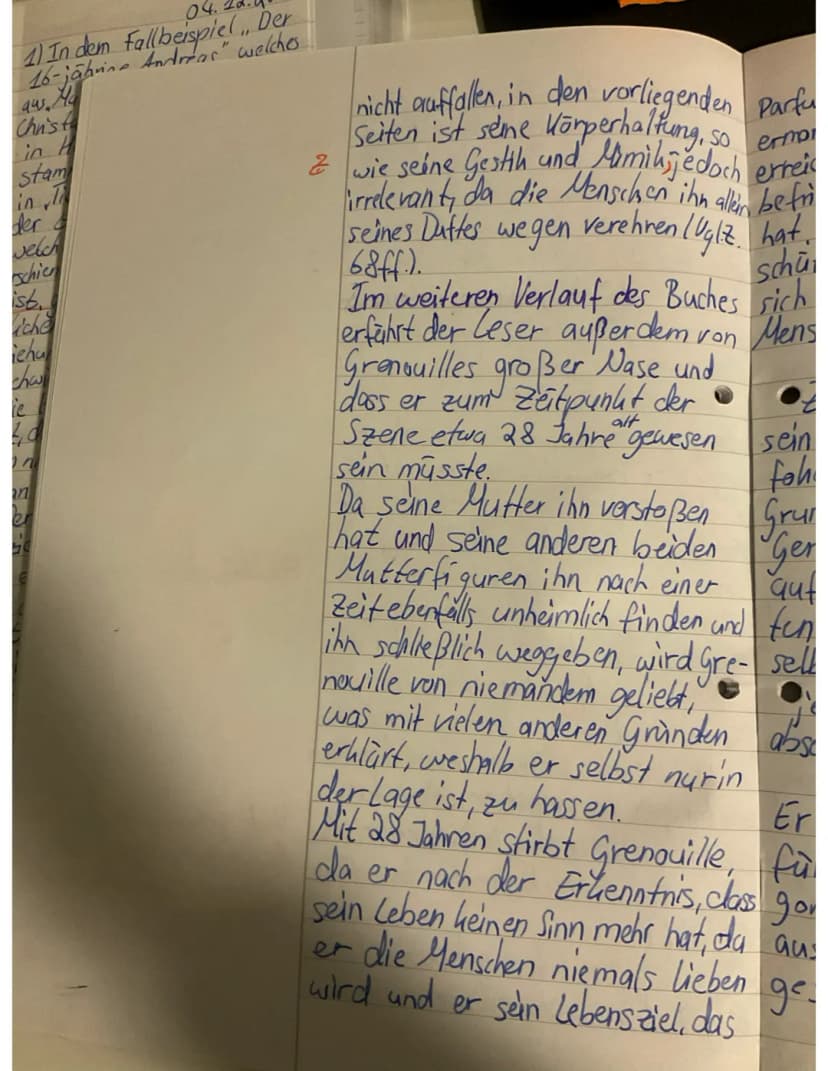 04.12.
1) In dem Fallbeispiel „Der
16-jährige Andreas" welches
aus
Christ
in H
stam
in
der
welch
schien
ist.
liche
iehu
chwi
ie
nicht auffallen, in den vorliegenden
Seiten ist seine Körperhaltung, so
Z wie seine Gestik und Mimik, jedoch
irrelevant, da die Menschen ihn allein
seines Duftes wegen verehren (Vgl. Z.
68ff.).
Im weiteren Verlauf des Buches
erfährt der Leser außerdem von
Grenouilles großer Nase und
dass er zum Zeitpunkt der
Szene etwa 28 Jahre alt gewesen
sein müsste.
Da seine Mutter ihn verstoßen
hat und seine anderen beiden
Mutterfiguren ihn nach einer
Zeit ebenfalls unheimlich finden und
ihn schließlich weggeben, wird Gre-
nouille von niemandem geliebt,
was mit vielen anderen Gründen
erklärt, weshalb er selbst nur in
der Lage ist, zu hassen.
Mit 28 Jahren stirbt Grenouille,
da er nach der Erkenntnis, dass
sein Leben keinen Sinn mehr hat, da
er die Menschen niemals lieben
wird und er sein Lebensziel, das
Parfu
ermor
erreic
befri
hat.
schü
sich
Mens
sein
foh
Grun
Ger
auf
ten
sell
abso
Er
fü
gor
aus
ge-